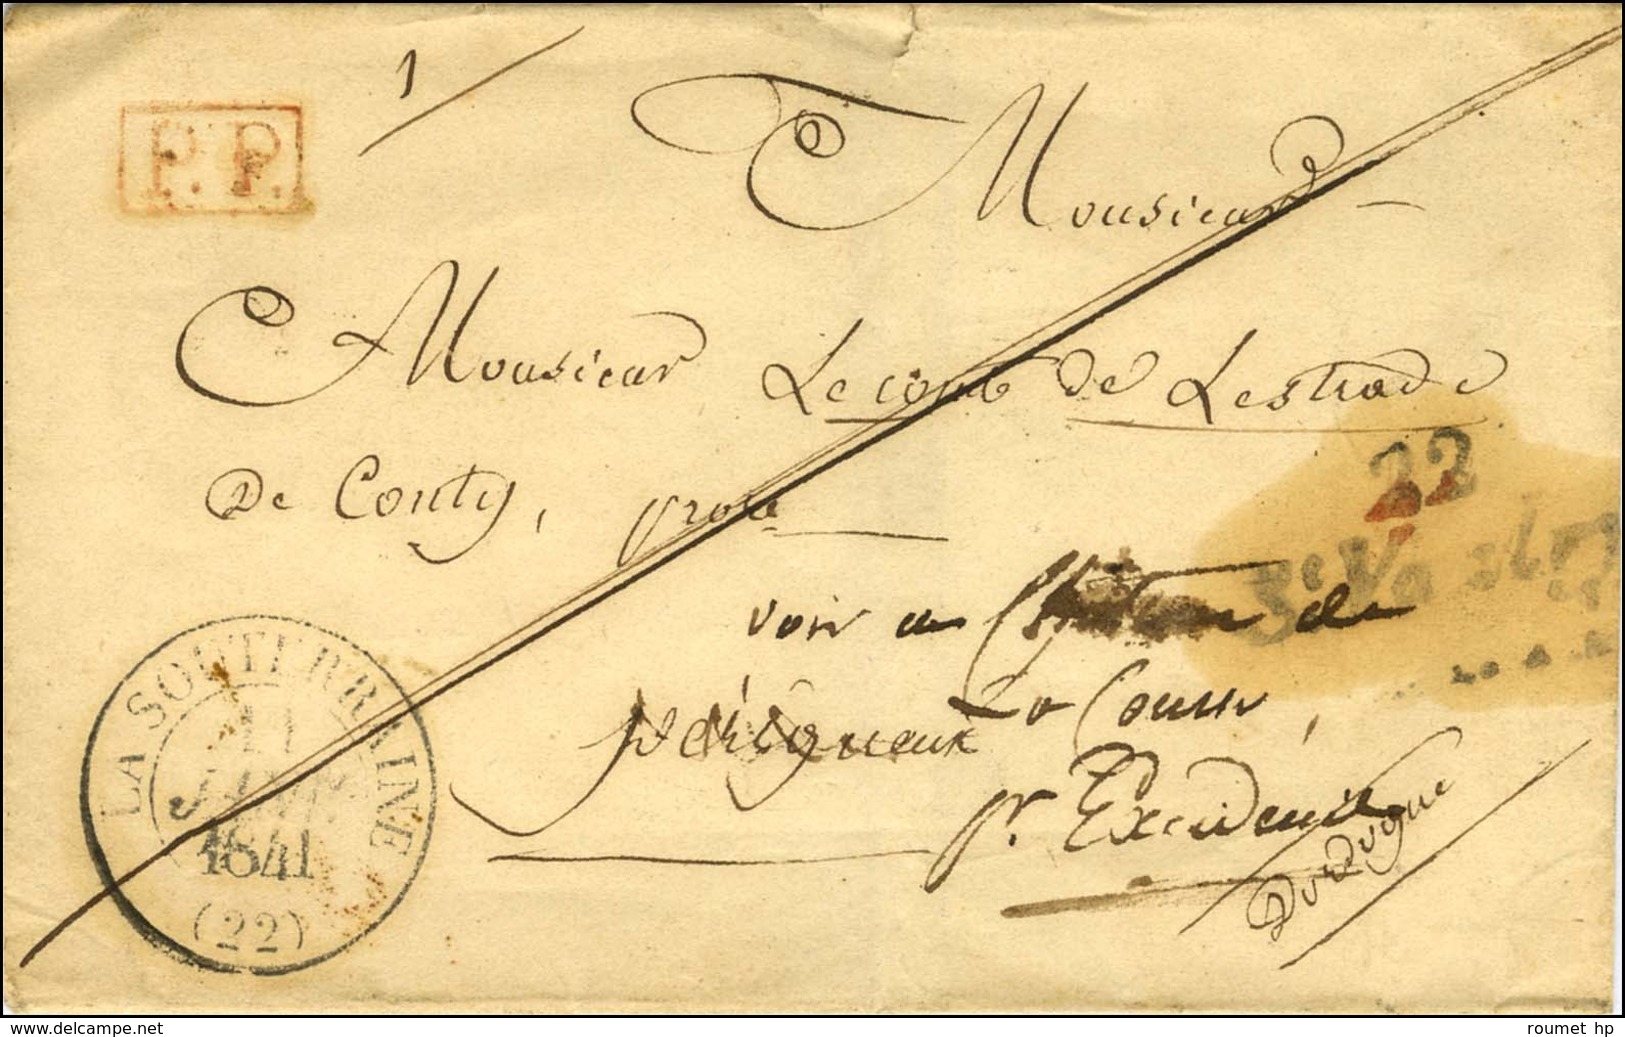 1
P.P.
Monsieur
Monsieur Le comte de Lestrade
De Conty,
22
voir au Château de
La Cousse,
périgueux
pr. Excideuil
Dordogne
LA SOUTERRAINE
11
JANV.
1841
(22)
www.delcampe.net
roumet hp